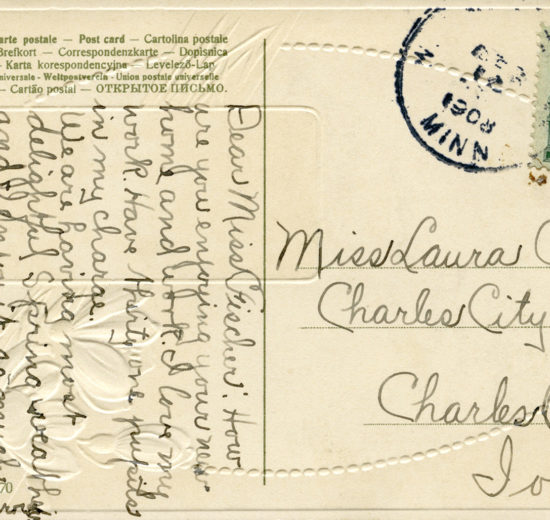 arte postale — Post card — Cartolina postale
Brefkort — Correspondenzkarte — Dopisnica
— Karta korespondencyjna — Levelező-Lap
Universale - Weltpostverein - Union postale universelle
— Cartão postal — ОТКРЫТОЕ ПИСЬМО.
Dear Miss Fischer: How
are you enjoying your new
home and work. I love my
work. Have thirty one pupils
in my charge.
We are having most
delightful Spring weather
and
MINN
1908
Miss Laura
Charles City
Charles
Io
70